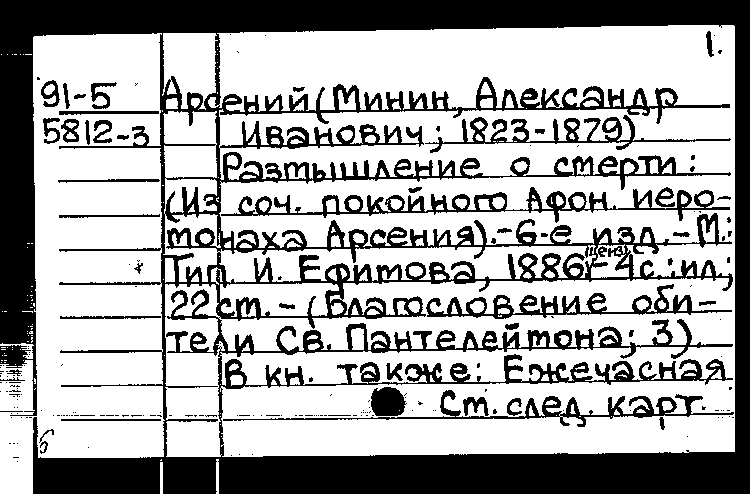 1.
91-5 Арсений (Минин, Александр
5812-3 Иванович; 1823-1879).
Размышление о смерти:
(Из соч. покойного Афон. иеро-
монаха Арсения).-6-е изд.-М.:
Тип. И. Ефимова, 1886 (ценз).-4с.:ил.;
22 ст. - (Благословение оби-
тели Св. Пантелеймона; 3).
В кн. также: Ежечасная
См. след. карт.
б